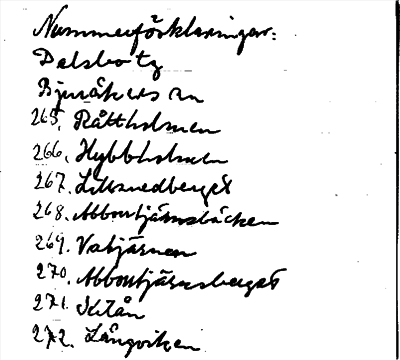 Nummerförklaringar:
Delsbo tg
Bjuråkers sn
265. Råttholmen
266. Hybbholmen
267. Lillsnedberget
268. Abborrtjärnsbäcken
269. Vatjärnen
270. Abborrtjärnsberget
271. Svån
272. Långviken